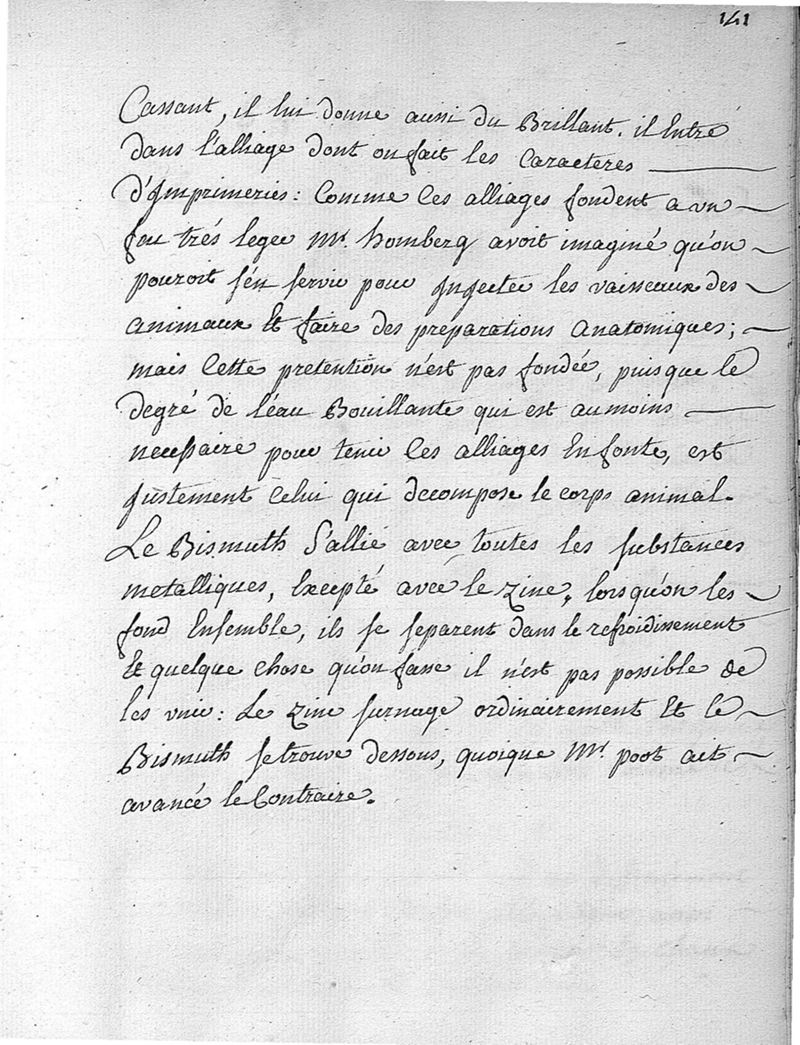 141
Cassant, il lui donne aussi du Brillant. il Entre
dans l'alliage dont on fait les Caracteres
d'Imprimeries : Comme Ces alliages fondent a un
feu trés leger Mr. homberg avoit imaginé qu'on
pouroit s'en servir pour Injecter les vaisseaux des
animaux Et faire des preparations anatomiques ;
mais Cette pretention n'est pas fondée, puisque le
degré de l'éau Bouillante qui est au moins
necessaire pour tenir Ces alliages En fonte, est
justement Celui qui decompose le corps animal.
Le Bismuth S'allie avec toutes les substances
metalliques, Excepté avec le Zinc, lorsqu'on les
fond Ensemble, ils se separent dans le refroidissement
Et quelque Chose qu'on fasse il n'est pas possible de
les unir : Le Zinc surnage ordinairement Et le
Bismuth se trouve dessous, quoique Mr. poot ait
avancé le Contraire.